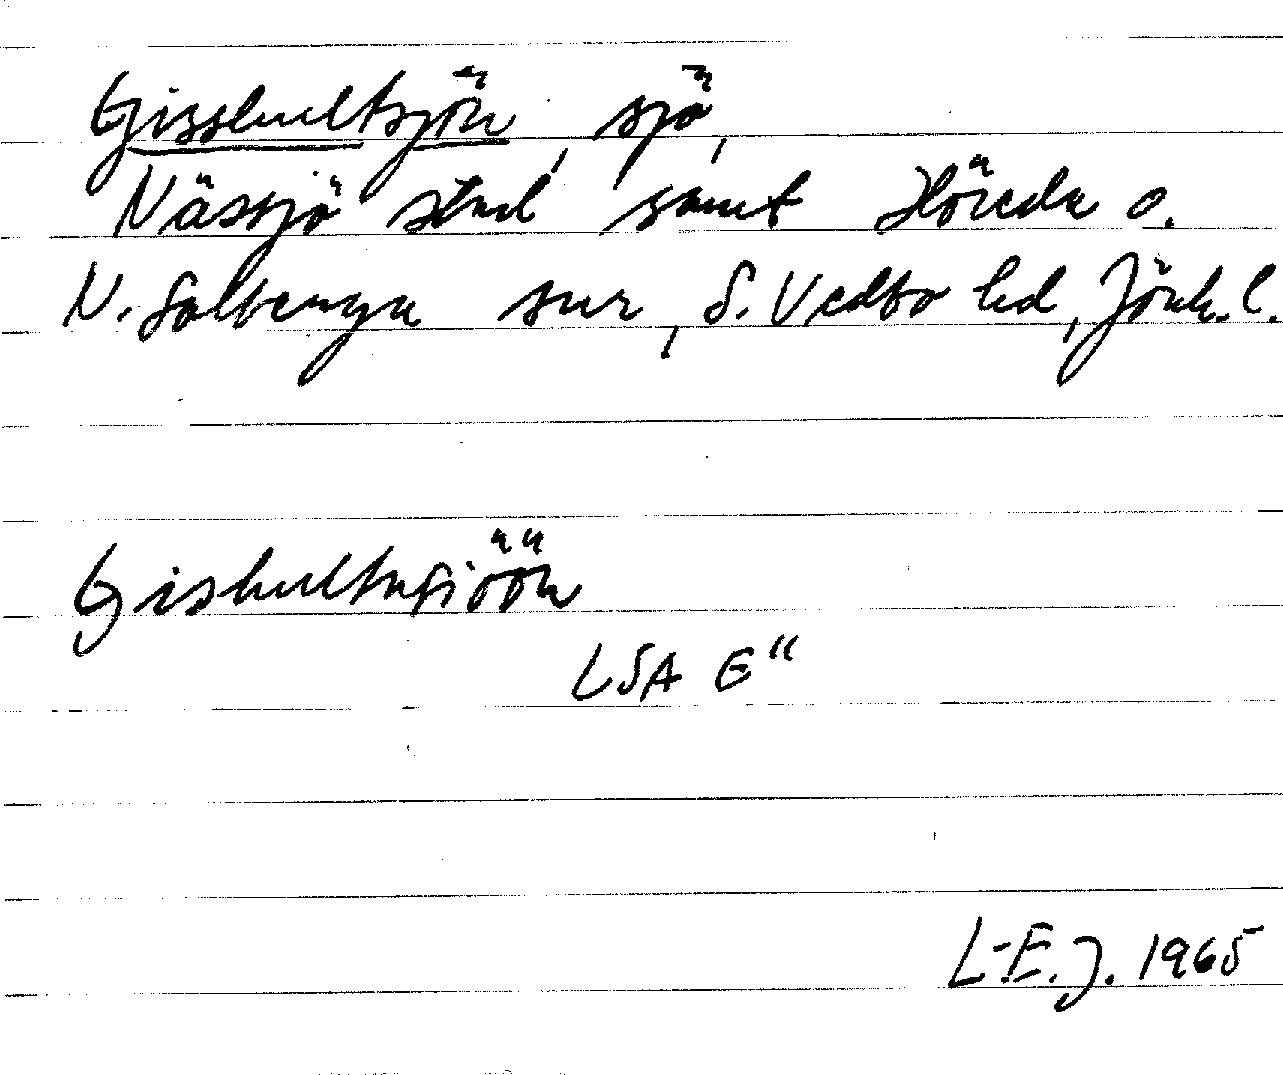 Gisshultsjön, sjö,
Nässjö stad samt Höreda o.
N. Solberga snr, S. Vedbo hd, Jönk. l.
Gishultasiöön
LSA E"
L-E. J. 1965